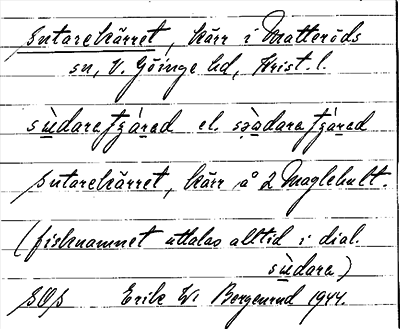 Sutarekärret, kärr i Matteröds
sn, V. Göinge hd, Krist. l.
sùdaretʒárad el. sə̀adaretʒárad
sutarekärret, kärr å 2 Maglehult.
(fisknamnet uttalas alltid i dial.
sùdara)
SOS Erik W. Bergenrud 1944.